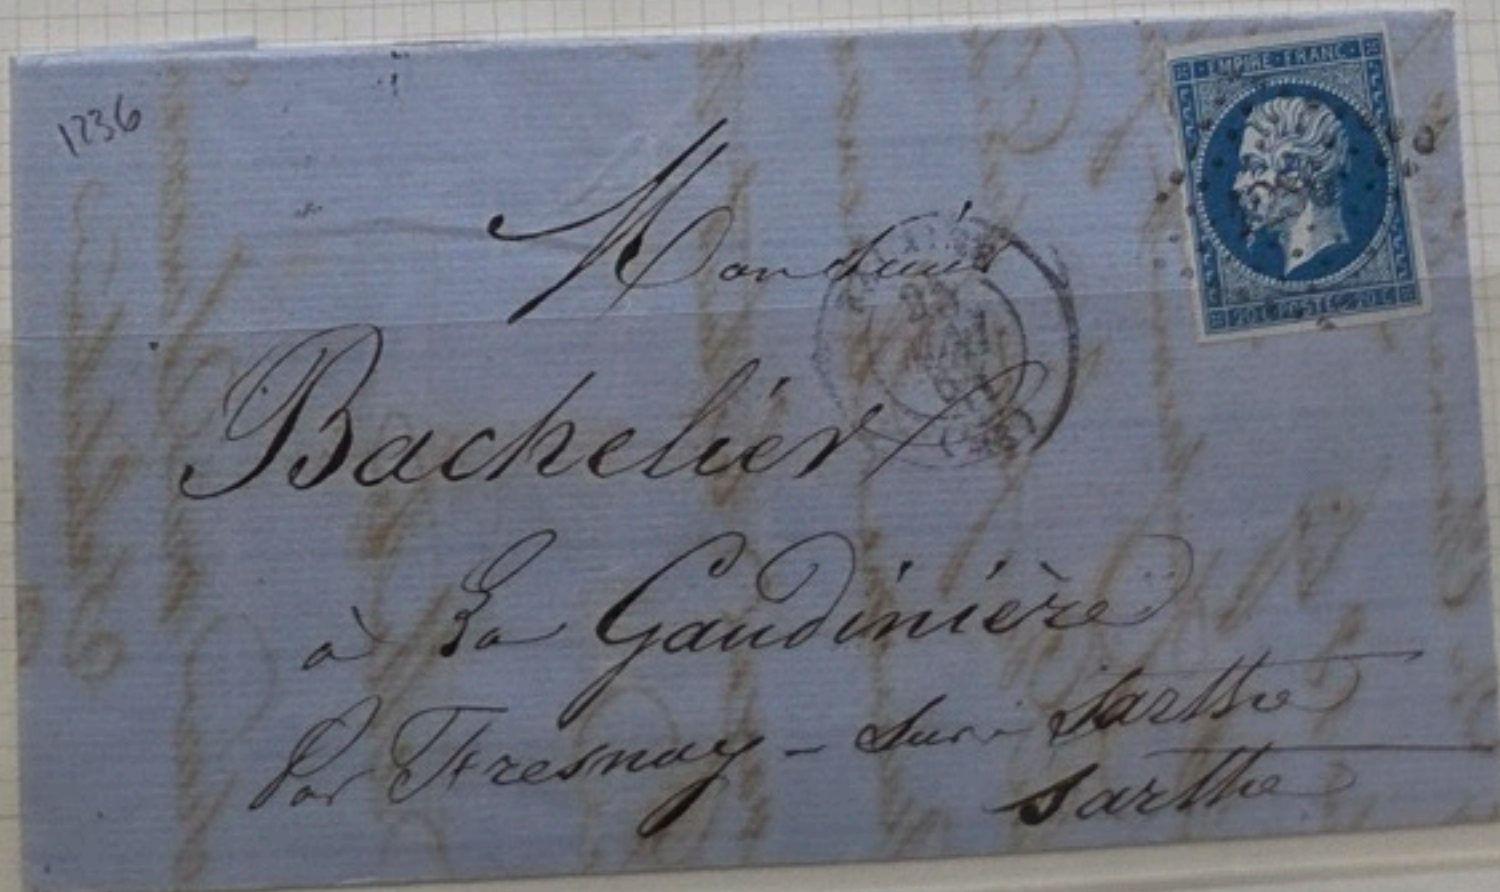 1236
EMPIRE FRANC
20 C. POSTES 20 C.
Monsieur
Bachelier
à La Gaudinière
Par Fresnay-sur-Sarthe
Sarthe